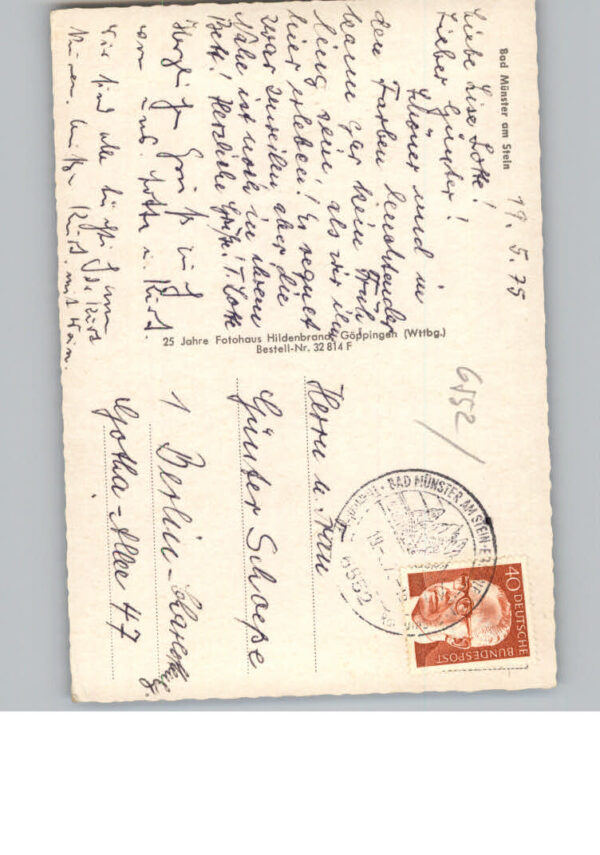 Bad Münster am Stein
19. 5. 75
Liebe Lise Lotte!
Lieber Günter!
Schöner und in
den Farben leuchtender
kann gar kein Früh,
ling sein, als wir ihn
hier erleben! Es regnet
zwar zuweilen aber die
Nahe ist noch in ihrem
Bett! Herzliche Grüße! T. Lotte
Herzliche Grüße
von uns. Lotte u. Kurt.
Wir sind alle
25 Jahre Fotohaus Hildenbrand, Göppingen (Wttbg.)
Bestell-Nr. 32 814 F
6552
Herrn u. Frau
Günter Schoepe
1 Berlin-
Gotha-Allee 47
BAD MÜNSTER AM STEIN-E
6552
40 DEUTSCHE
BUNDESPOST